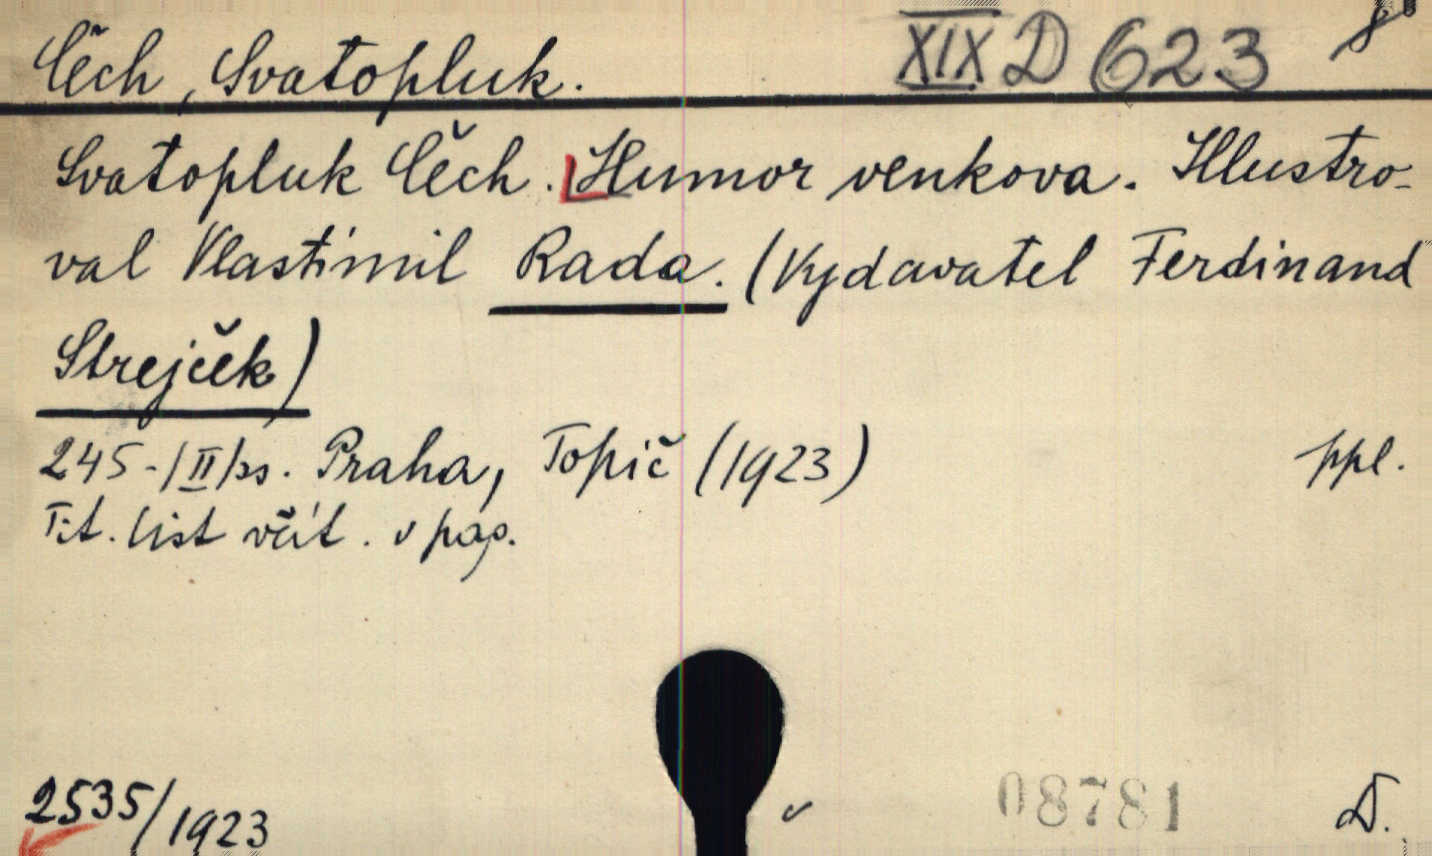 Čech, Svatopluk.
XIX D 623
8°
Svatopluk Čech. Humor venkova. Illustro-
val Vlastimil Rada. (Vydavatel Ferdinand
Strejček)
245-/II/ss. Praha, Topič (1923)
ppl.
Tit. list včít. v pag.
2535/1923
08781
D.